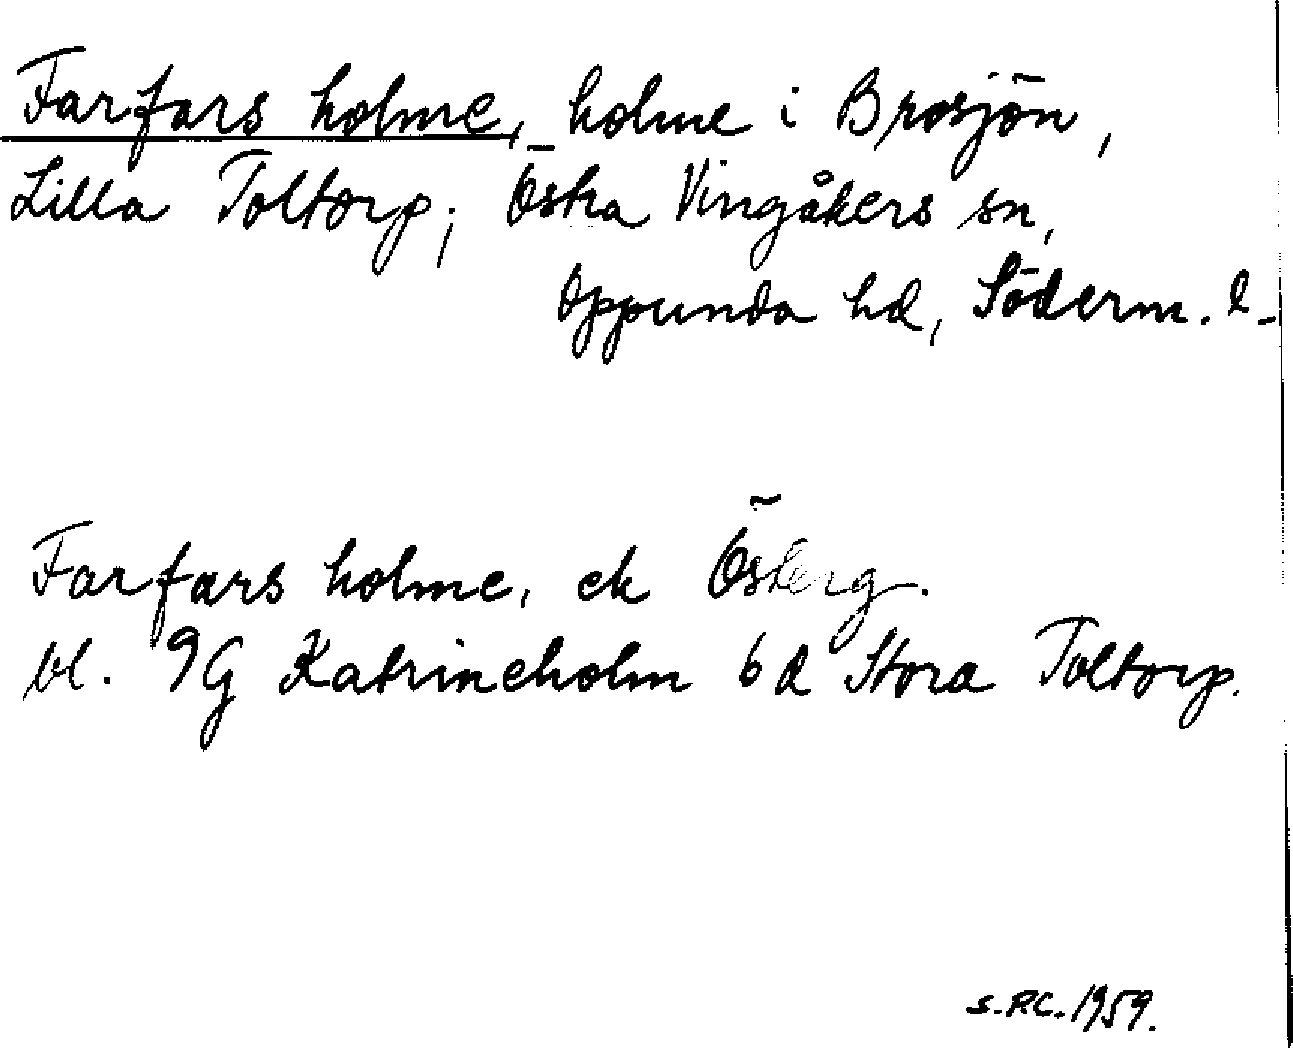 Farfars holme, holme i Brosjön,
Lilla Toltorp; Östra Vingåkers sn,
Oppunda hd, Söderm. l.
Farfars holme, ek Österg.
bl. 9G Katrineholm 6d Stora Toltorp.
S.R.C. 1959.